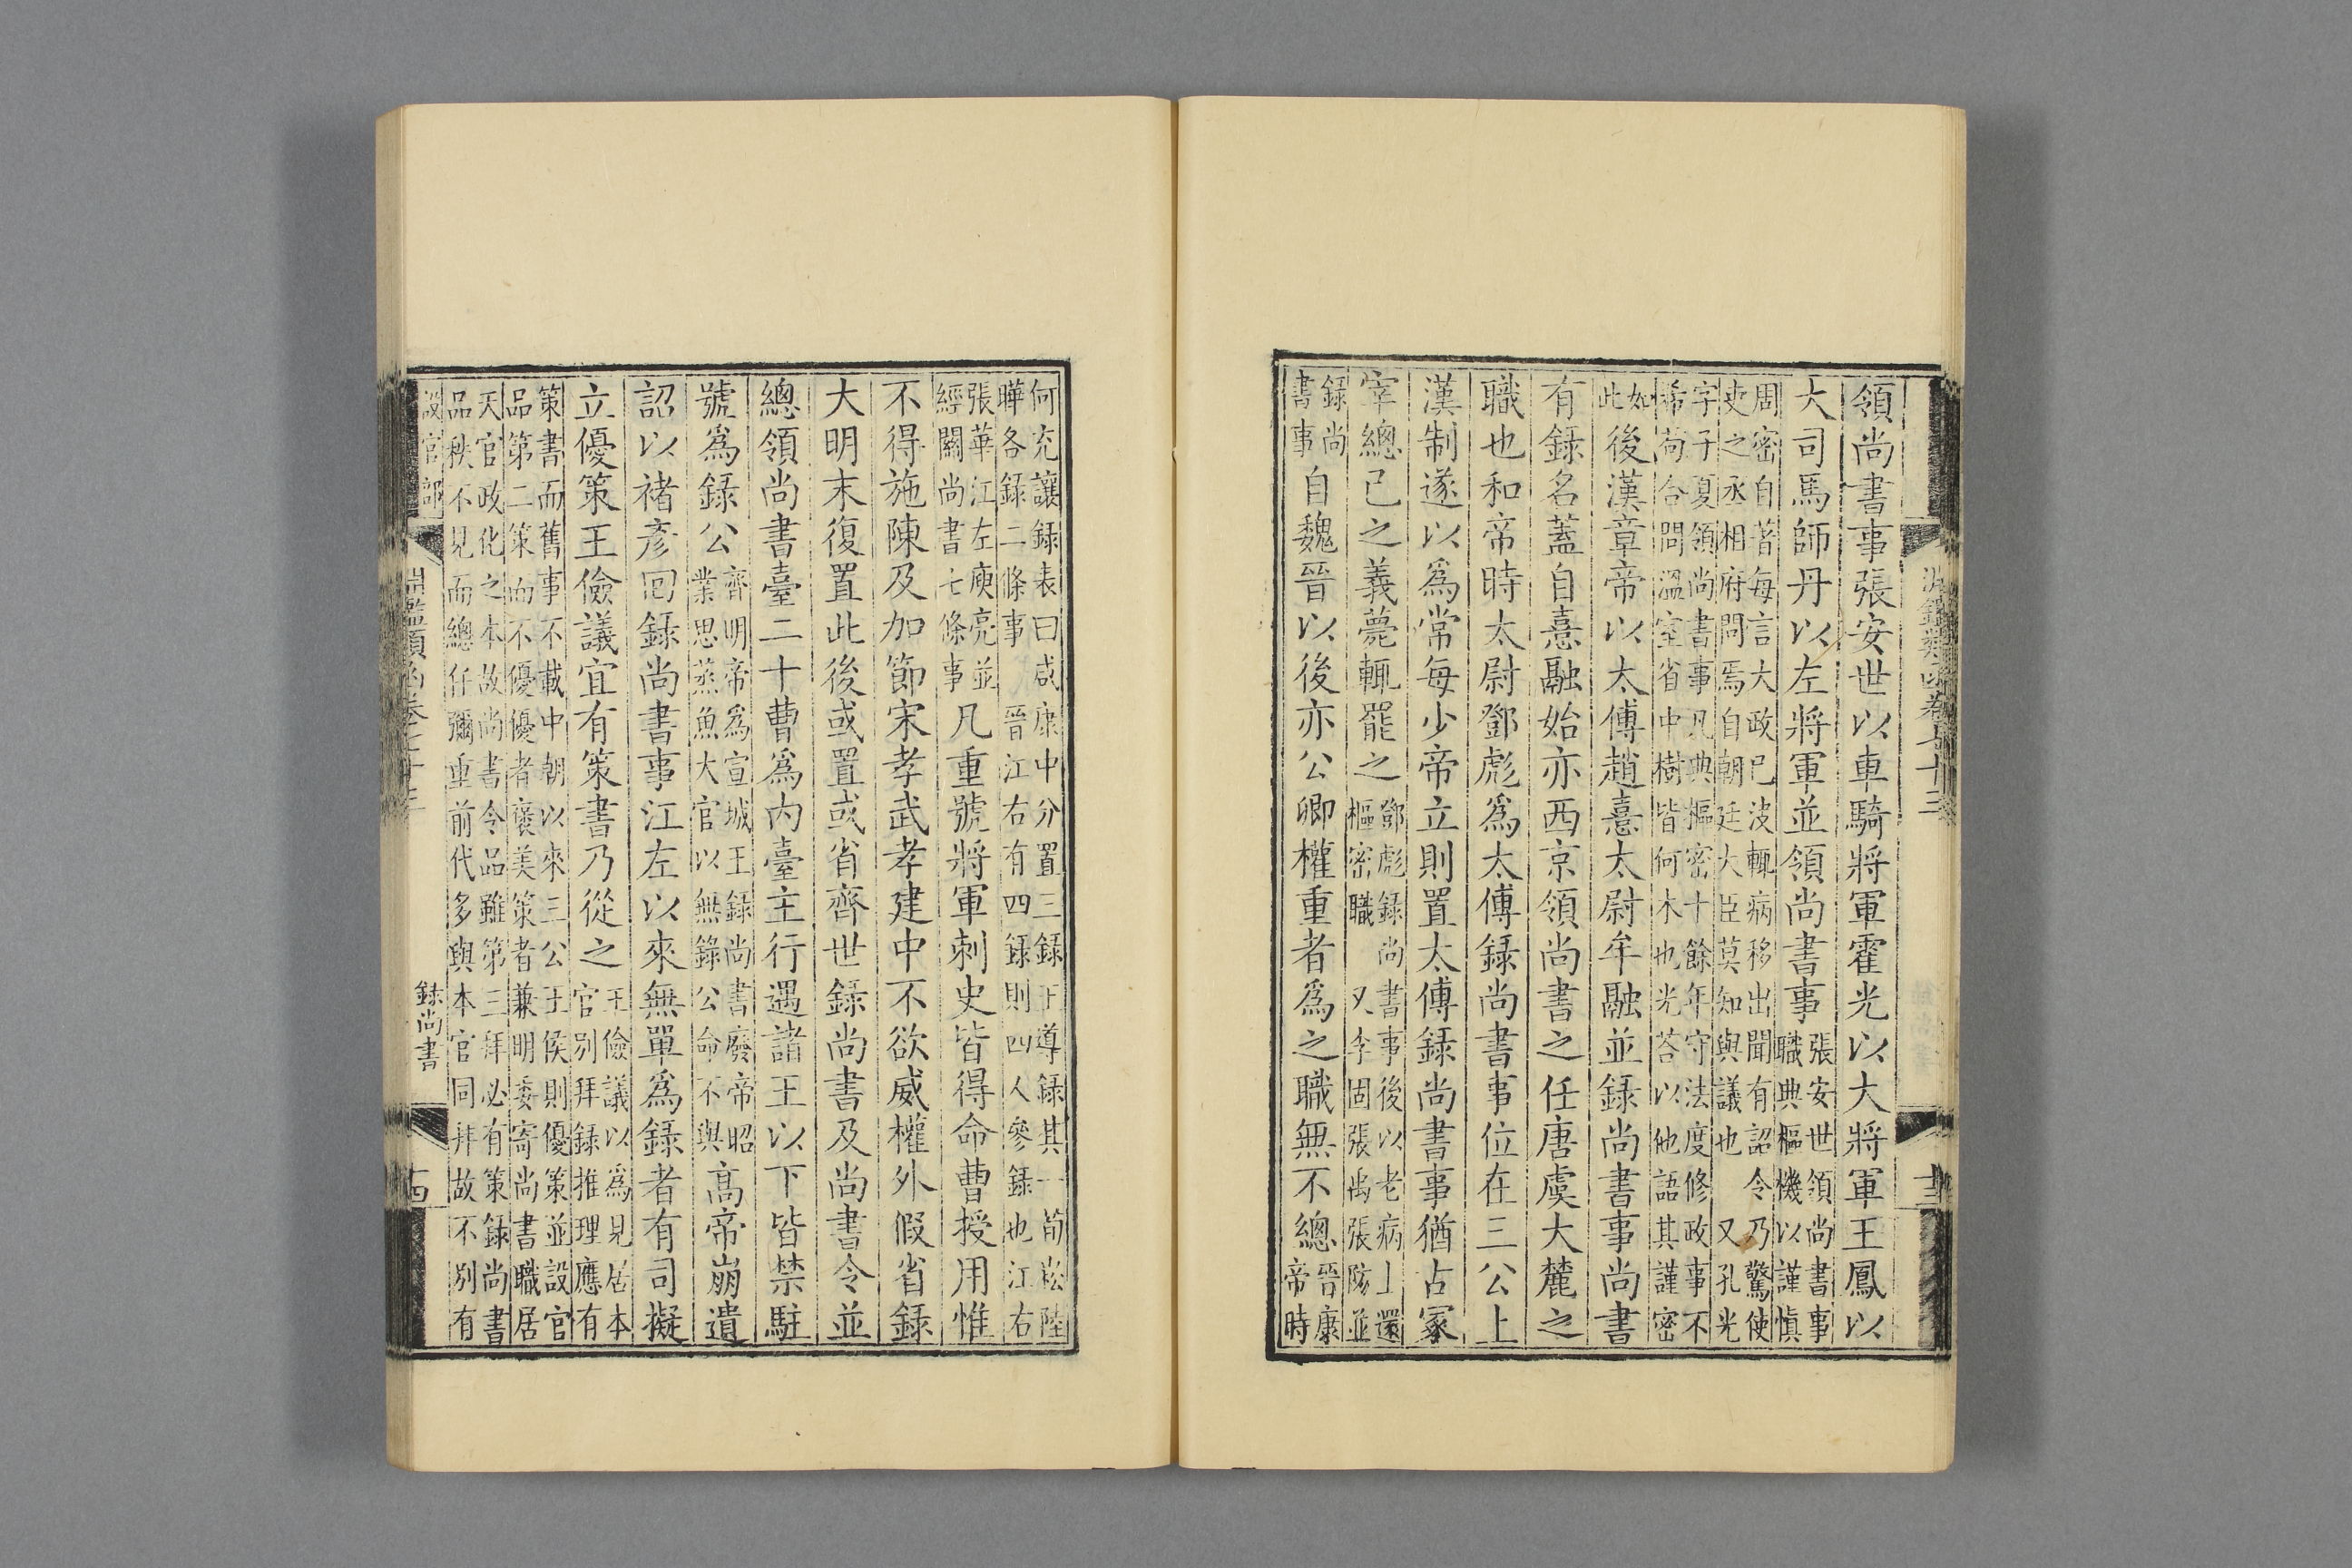 淵鑑類函卷七十三
十三
領尚書事張安世以車騎將軍霍光以大將軍王鳳以
大司馬師丹以左將軍並領尚書事張安世領尚書事職典樞機以謹慎
周密自著每言大政已決輒病移出聞有詔令乃驚使
吏之丞相府問焉自朝廷大臣莫知與議也 又孔光
字子夏領尚書事凡典樞密十餘年守法度修政事不
希苟合問溫室省中樹皆何木也光荅以他語其謹密
如此後漢章帝以太傅趙憙太尉牟融並録尚書事尚書
有録名蓋自憙融始亦西京領尚書之任唐虞大麓之
職也和帝時太尉鄧彪爲太傅録尚書事位在三公上
漢制遂以爲常每少帝立則置太傅録尚書事猶古冢
宰總已之義薨輒罷之鄧彪録尚書事後以老病上還樞密職 又李固張禹張防並
録尚書事自魏晉以後亦公卿權重者爲之職無不總晉康帝時
何充讓録表曰咸康中分置三録王導録其一荀崧陸
曄各録二條事 晉江右有四録則四人參録也江右
張華江左庾亮並經關尚書七條事凡重號將軍刺史皆得命曹授用惟
不得施陳及加節宋孝武孝建中不欲威權外假省録
大明末復置此後或置或省齊世録尚書及尚書令並
總領尚書臺二十曹爲內臺主行遇諸王以下皆禁駐
號爲録公齊明帝爲宣城王録尚書廢帝昭業思蒸魚大官以無録公命不與高帝崩遺
詔以褚彥回録尚書事江左以來無單爲録者有司擬
立優策王儉議宜有策書乃從之王儉議以爲見居本官別拜録推理應有
策書而舊事不載中朝以來三公王侯則優策並設官
品第二策而不優優者褒美策者兼明委寄尚書職居
天官政化之本故尚書令品雖第三拜必有策録尚書
品秩不見而總任彌重前代多與本官同拜故不別有
設官部
淵鑑類函卷七十三
録尚書
十四